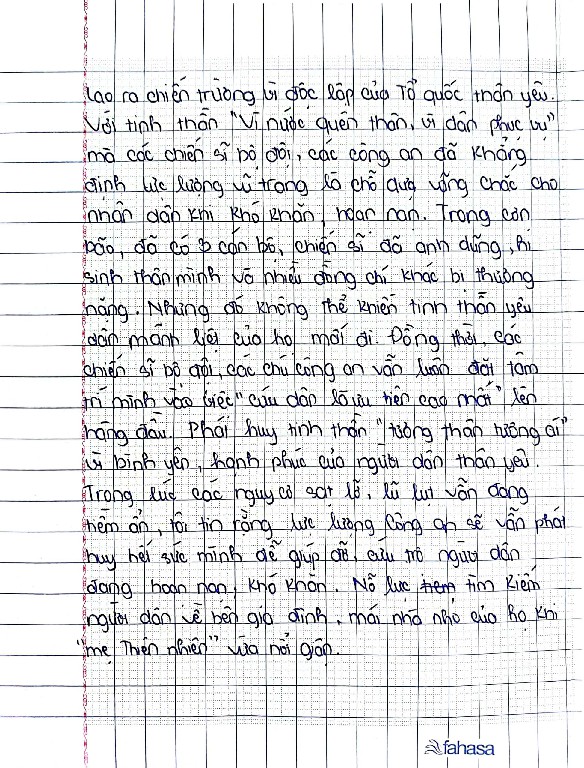 lao ra chiến trường vì độc lập của Tổ quốc thân yêu.
Với tinh thần "Vì nước quên thân, vì dân phục vụ"
mà các chiến sĩ bộ đội, các công an đã khẳng
định lực lượng vũ trang là chỗ dựa vững chắc cho
nhân dân khi khó khăn, hoạn nạn. Trong cơn
bão, đã có 8 cán bộ, chiến sĩ đã anh dũng, hi
sinh thân mình và nhiều đồng chí khác bị thương
nặng. Nhưng đó không thể khiến tinh thần yêu
dân mãnh liệt của họ mất đi. Đồng thời, các
chiến sĩ bộ đội, các chú công an vẫn luôn đặt tâm
trí mình vào việc "cứu dân là ưu tiên cao nhất" lên
hàng đầu. Phát huy tinh thần "tương thân tương ái"
vì bình yên, hạnh phúc của người dân thân yêu.
Trong lúc các nguy cơ sạt lở, lũ lụt vẫn đang
tiềm ẩn, tôi tin rằng lực lượng Công an sẽ vẫn phát
huy hết sức mình để giúp đỡ, cứu trợ người dân
đang hoạn nạn, khó khăn. Nỗ lực tìm kiếm
người dân về bên gia đình, mái nhà nhỏ của họ khi
"mẹ Thiên nhiên" vừa nổi giận.
fahasa